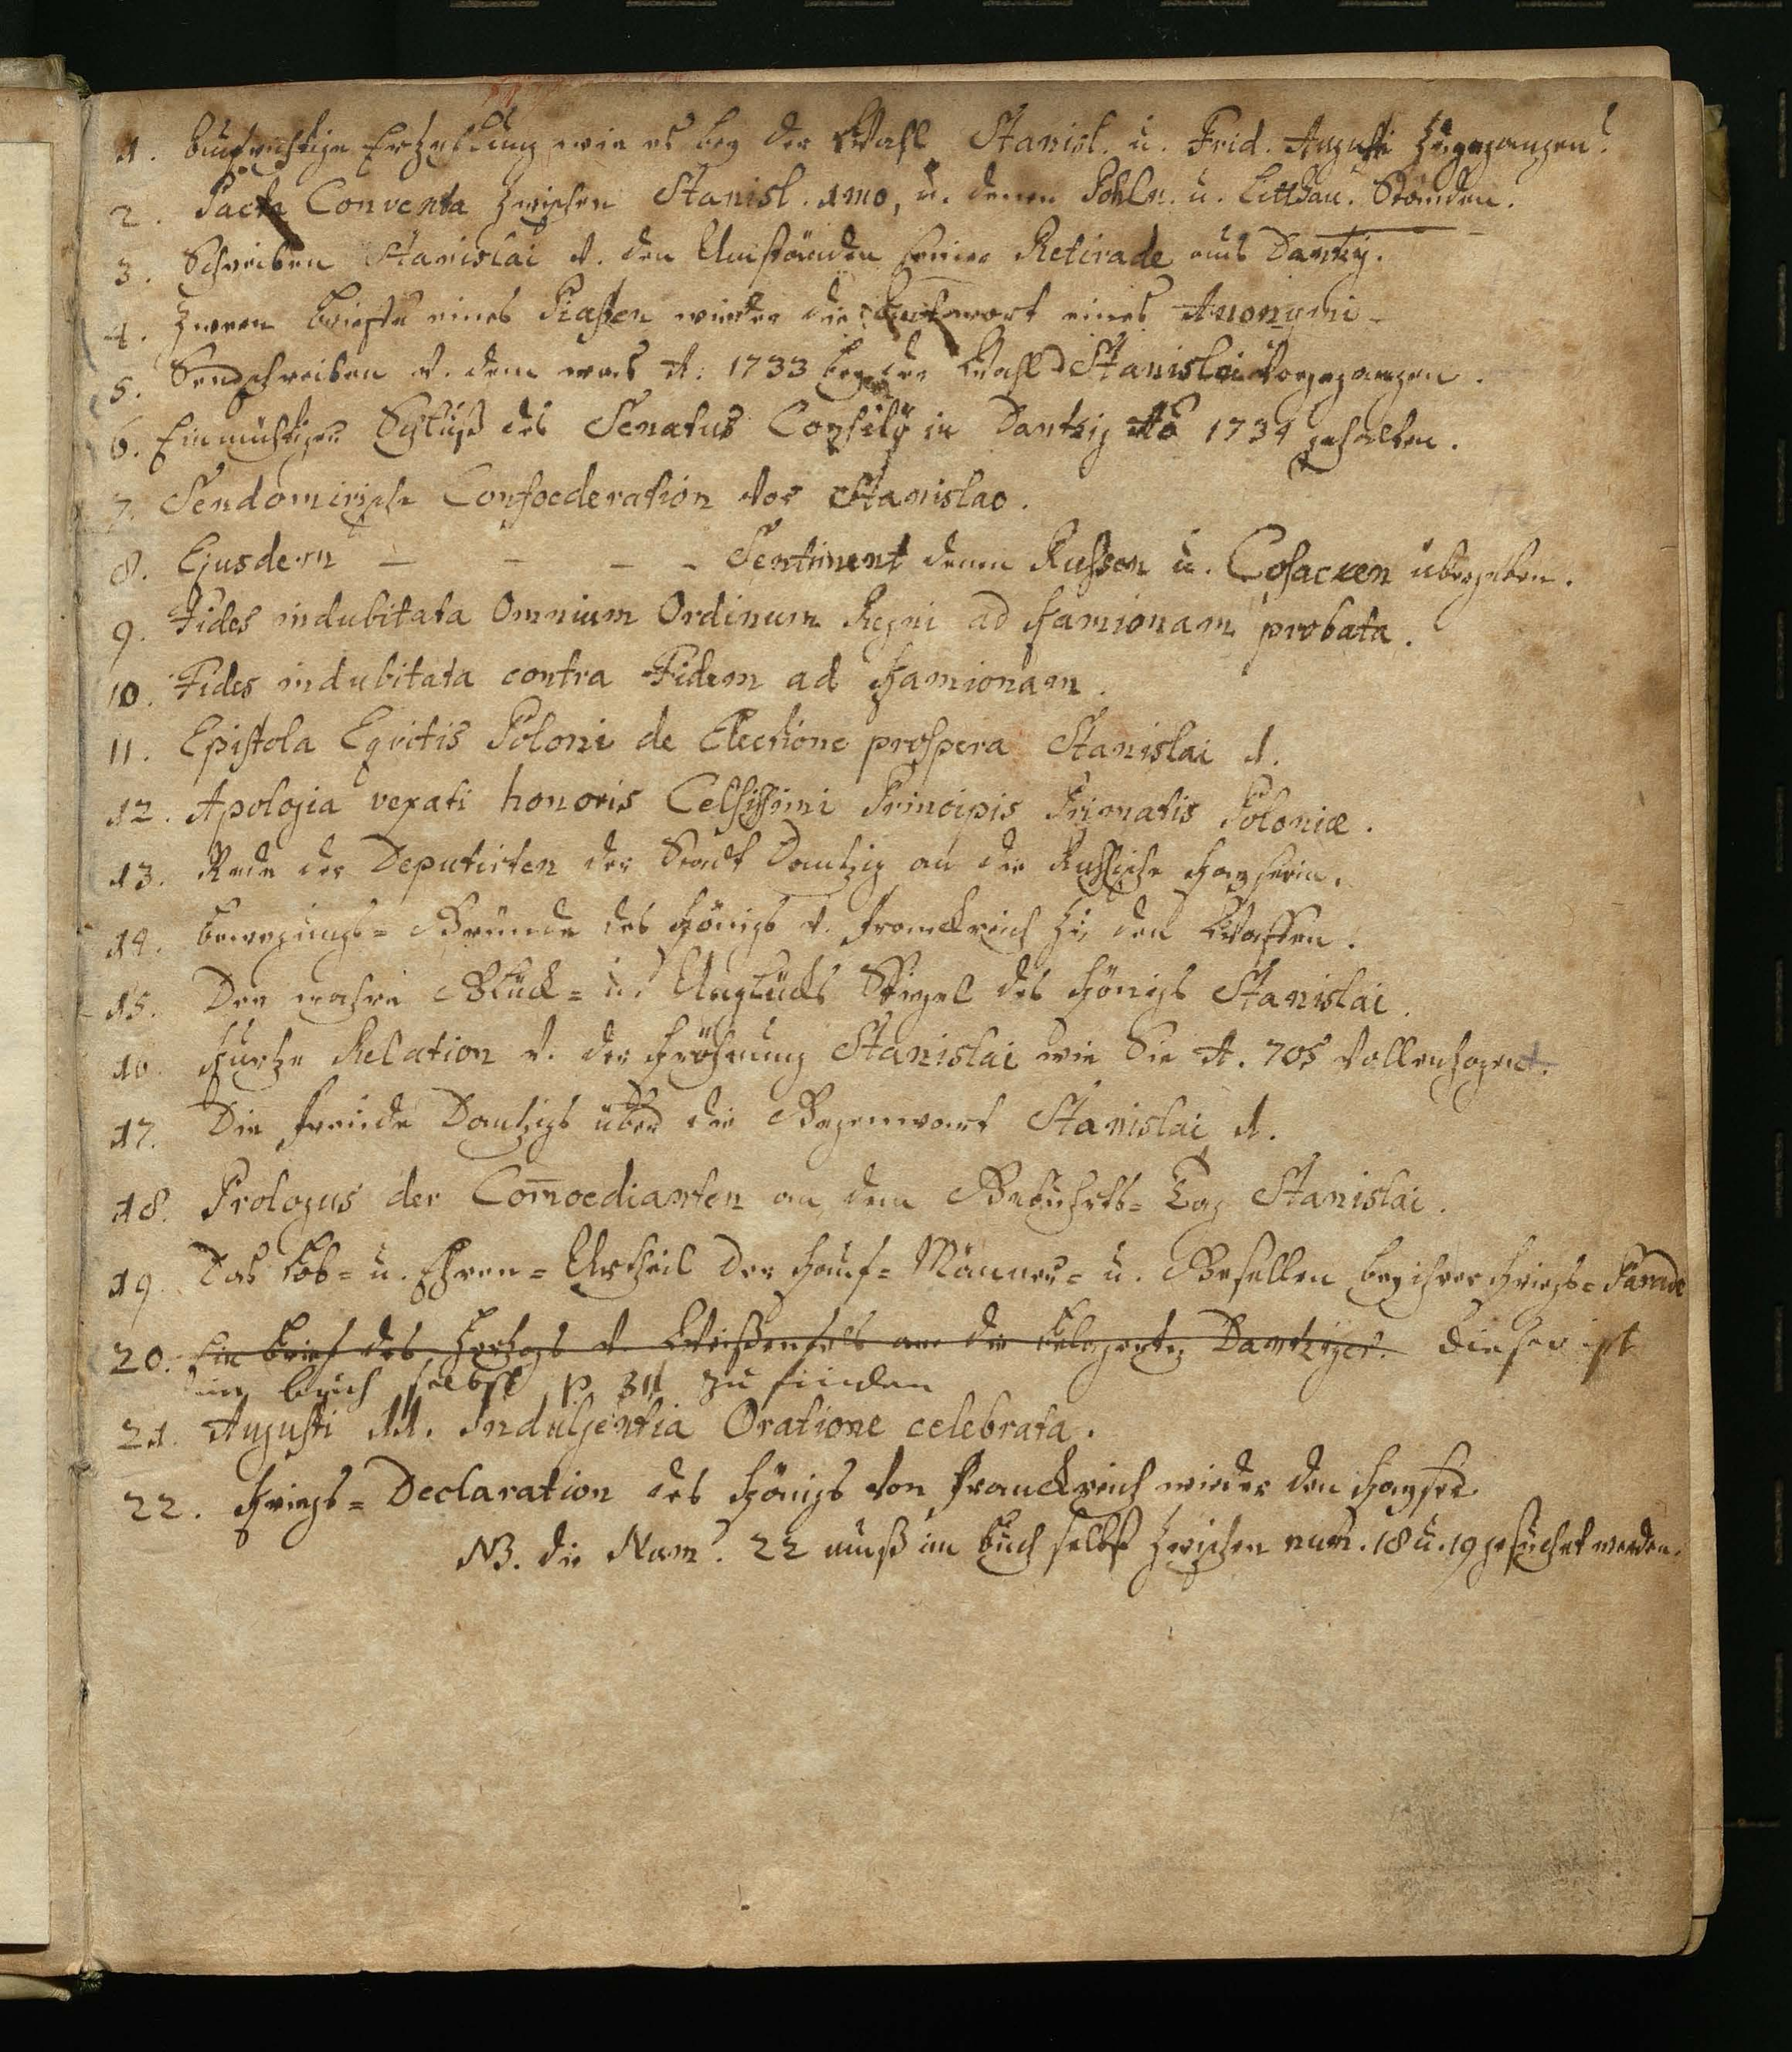 1. Aufrichtige Erzehlung wie es bey der Wahl Stanisl. u. Frid. Augusti zugegangen.
2. Pacta Conventa zwischen Stanisl. 1mo, u. denen Pohln. u. Litthau. Ständen.
3. Schreiben Stanislai v. den Umständen seiner Retirade aus Dantzig.
4. Zween Briefe eines Piasten wieder die Antwort eines Anonymi
5. Sendschreiben v. dem was A. 1733 bey der Wahl Stanislai vorgegangen.
6. Einmüthiger Schluß des Senatus Consilij in Dantzig Ao 1734 gehalten.
7. Sendomirische Confoederation vor Stanislao.
8. Ejusdem - - - - Sentiment denen Russen u. Cosacken übergeben.
9. Fides indubitata Omnium Ordinum Regni ad Kamionam probata.
10. Fides indubitata contra Fidem ad Kamionam.
11. Epistola Equitis Poloni de Electione prospera Stanislai 1.
12. Apologia vexati honoris Celsissimi Principis Primatis Poloniæ.
13. Rede der Deputirten der Stadt Dantzig an die Russische Kayserin.
14. Bewegungs-Gründe des Königs v. Franckreich zu den Waffen.
15. Der wahre Glück- u. Unglücks Spiegel des Königs Stanislai.
16. Kurtze Relation v. der Kröhnung Stanislai wie Sie A. 705 vollenzogen.
17. Die Freude Dantzigs über die Gegenwart Stanislai 1.
18. Prologus der Com̄oedianten an dem Gebuhrts-Tag Stanislai.
19. Das Lob- u. Ehren-Urtheil der Kauf-Männer- u. Gesellen bey ihrer Kriegs-Parade
20. Ein Brief des Hertzogs v. Weißenfels an die belagerte Dantziger. dieser ist
im buch selbst p. 311 zu finden
21. Augusti 11. Indulgentia Oratione celebrata.
22. Kriegs-Declaration des Königs von Franckreich wieder den Kayser.
NB. die Num. 22 muß im Buch selbst zwischen num. 18 u. 19 gesuchet werden.